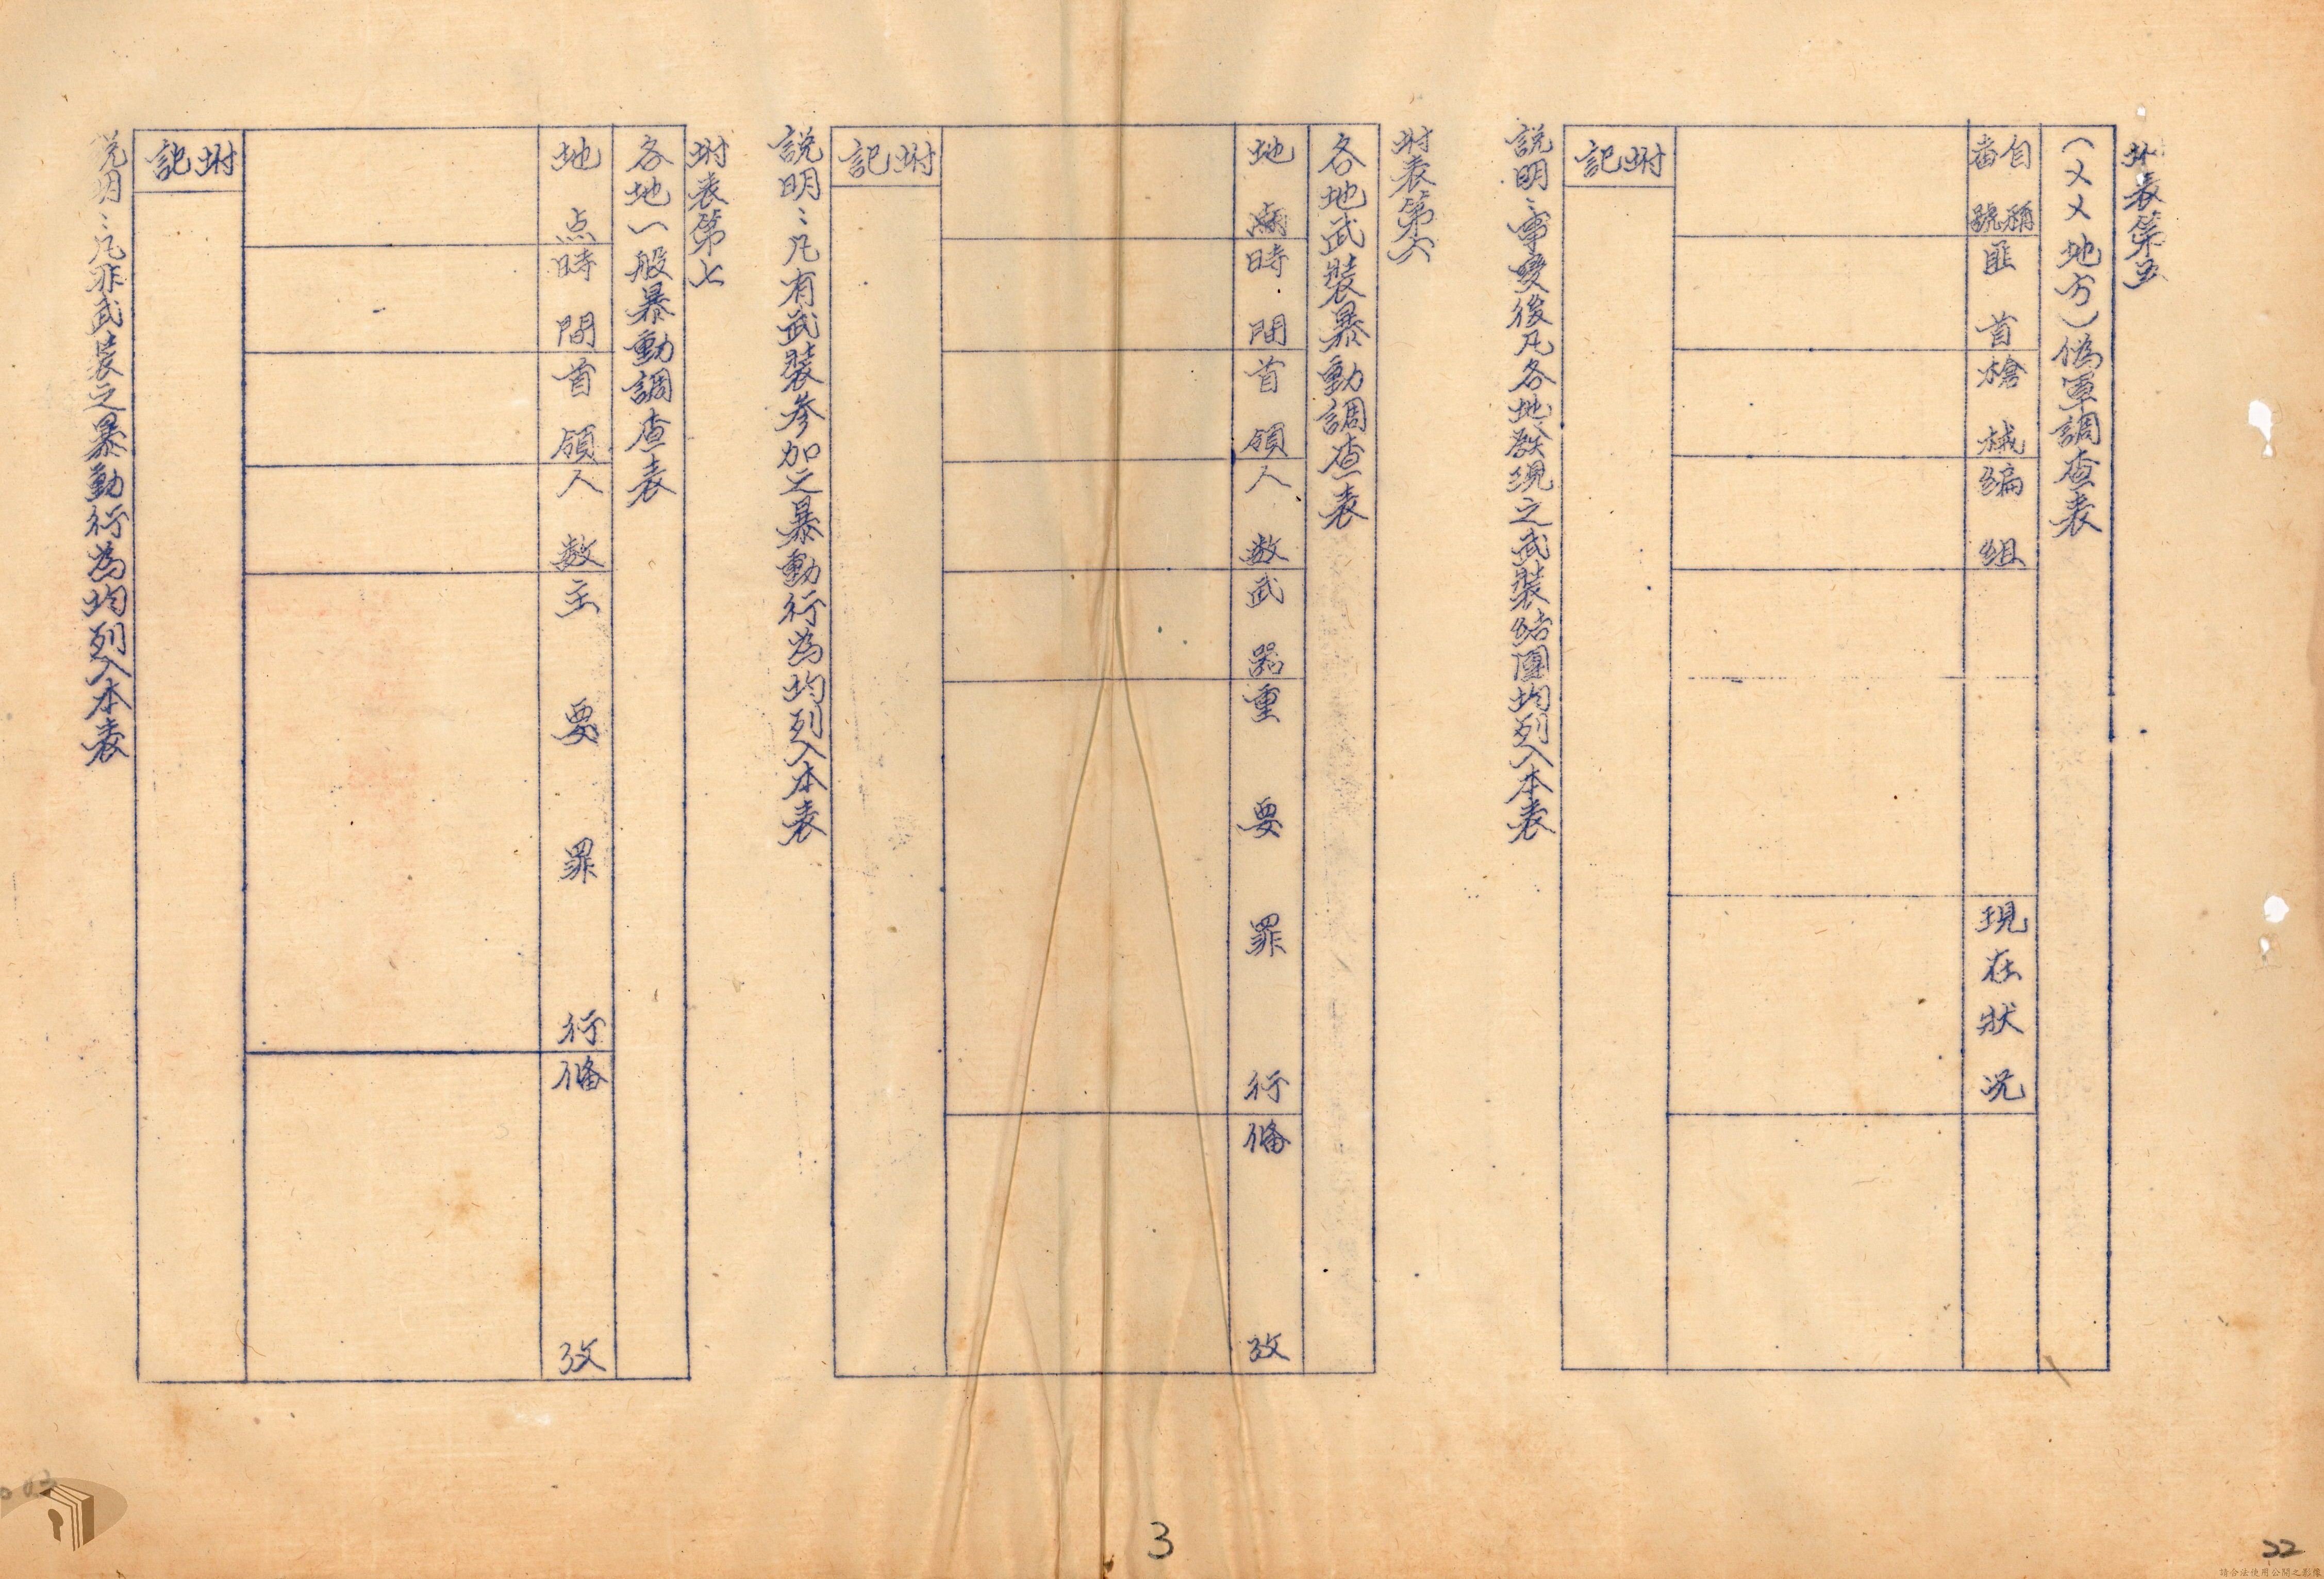 坿表第五
(ㄨㄨ地方)偽軍調查表
自稱番號
匪首
槍械
編組
現在狀況
坿記
説明:事變後凡各地發現之武裝結團均列入本表
坿表第六
各地武裝暴動調查表
地點
時間
首領
人数
武器
重要罪行
俻攷
坿記
説明:凡有武裝參加之暴動行為均列入本表
坿表第七
各地一般暴動調查表
地点
時間
首領
人数
主要罪行
俻攷
坿記
説明:凡非武裝之暴動行為均列入本表
3
22
請合法使用公開之影像